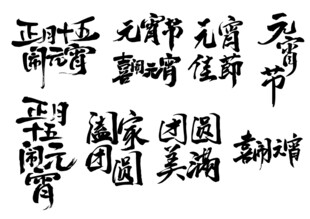 正月十五
闹元宵
元宵节
喜闹元宵
元宵
佳節
元宵节
正月
十五
闹元
宵
阖家
团圆
团圆
美满
喜闹元宵